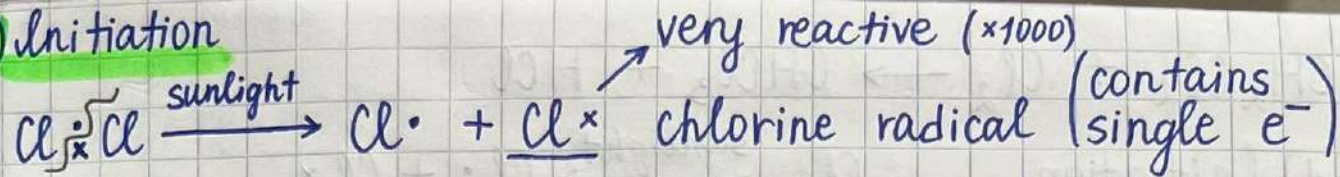 ) Initiation
very reactive (×1000)
Cl ·× Cl —sunlight→ Cl· + Cl× chlorine radical (contains single e⁻)